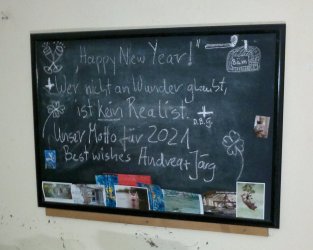 Happy New Year!
Bam
Wer nicht an Wunder glaubt,
ist kein Realist.
D.B.G.
Unser Motto für 2021
Best wishes Andrea + Jörg